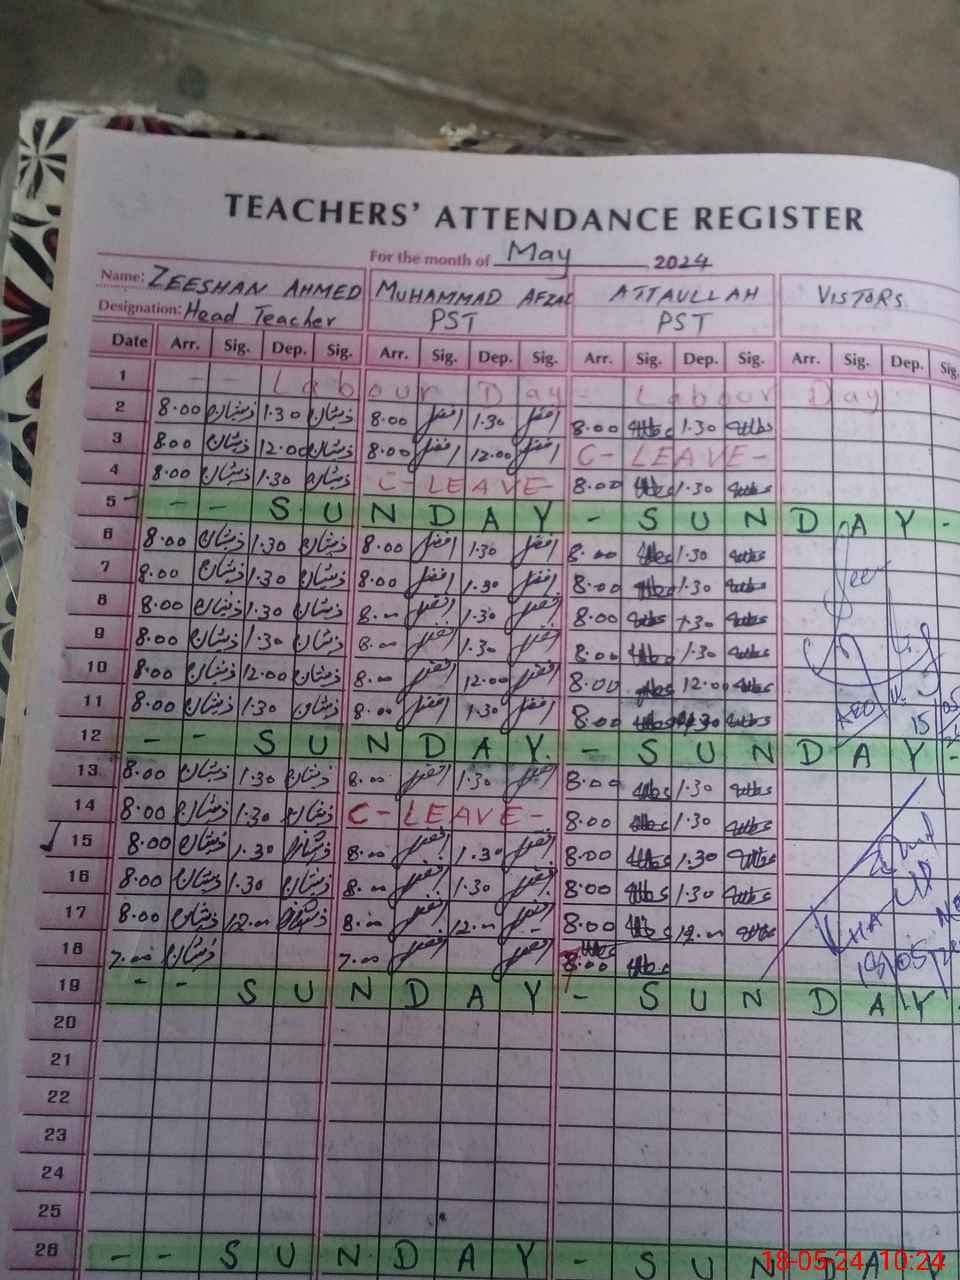 TEACHERS' ATTENDANCE REGISTER
For the month of May 2024
Name: ZEESHAN AHMED MUHAMMAD AFZAL ATTAULLAH VISTORS
Designation: Head Teacher PST PST
Date Arr. Sig. Dep. Sig. Arr. Sig. Dep. Sig. Arr. Sig. Dep. Sig. Arr. Sig. Dep. Sig.
1 - - Labour Day - Labour Day
2 8.00 ذیشان 1.30 ذیشان 8.00 افضل 1.30 افضل 8.00 1.30
3 8.00 ذیشان 12.00 ذیشان 8.00 افضل 12.00 افضل C-LEAVE-
4 8.00 ذیشان 1.30 ذیشان C-LEAVE- 8.00 1.30
5 - - SUNDAY - SUNDAY -
6 8.00 ذیشان 1.30 ذیشان 8.00 افضل 1.30 افضل 8.00 1.30
7 8.00 ذیشان 1.30 ذیشان 8.00 افضل 1.30 افضل 8.00 1.30
8 8.00 ذیشان 1.30 ذیشان 8.00 افضل 1.30 افضل 8.00 1.30
9 8.00 ذیشان 1.30 ذیشان 8.00 افضل 1.30 افضل 8.00 1.30
10 8.00 ذیشان 12.00 ذیشان 8.00 افضل 12.00 افضل 8.00 12.00
11 8.00 ذیشان 1.30 ذیشان 8.00 افضل 1.30 افضل 8.00 1.30
12 - - SUNDAY - SUNDAY -
13 8.00 ذیشان 1.30 ذیشان 8.00 افضل 1.30 افضل 8.00 1.30
14 8.00 ذیشان 1.30 ذیشان C-LEAVE- 8.00 1.30
15 8.00 ذیشان 1.30 ذیشان 8.00 افضل 1.30 افضل 8.00 1.30
16 8.00 ذیشان 1.30 ذیشان 8.00 افضل 1.30 افضل 8.00 1.30
17 8.00 ذیشان 12.00 ذیشان 8.00 افضل 12.00 افضل 8.00 12.00
18 7.00 ذیشان 7.00 افضل افضل 8.00
19 - - SUNDAY - SUNDAY -
20
21
22
23
24
25
26 - - SUNDAY - SUNDAY
18-05-24, 10:24